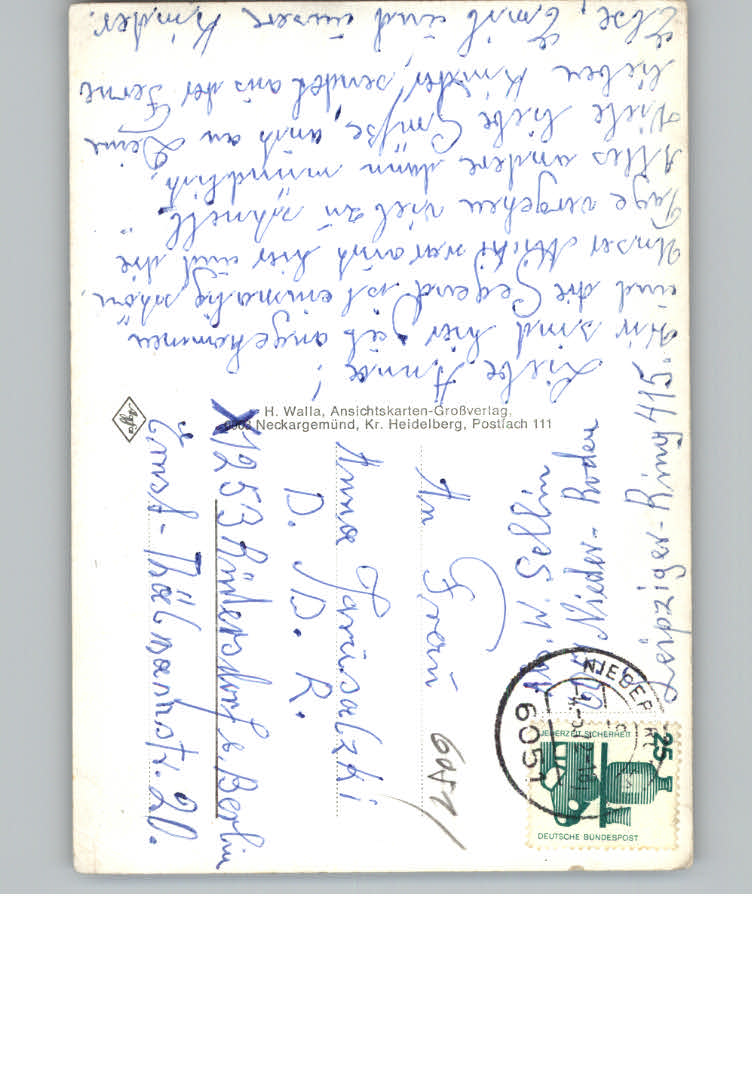 Liebe Anna!
Wir sind hier gut angekommen
und die Gegend ist einmalig schön,
Unser Michi war auch hier und die
Tage vergehen viel zu schnell.
Alles andere dann mündlich,
Viele liebe Grüße, auch an Deine
lieben Kinder, sendet aus der Ferne
Else, Emil und unsere Kinder.
H. Walla, Ansichtskarten-Großverlag,
Neckargemünd, Kr. Heidelberg, Postfach 111
Agfa
W. Sellin
Nieder-Roden
Leipziger-Ring 415.
An Frau
Anna
D. D. R.
X1253 Rüdersdorf b. Berlin
Ernst-Thälmannstr. 20.
6051
NIEDER
JEDERZEIT SICHERHEIT
25
DEUTSCHE BUNDESPOST